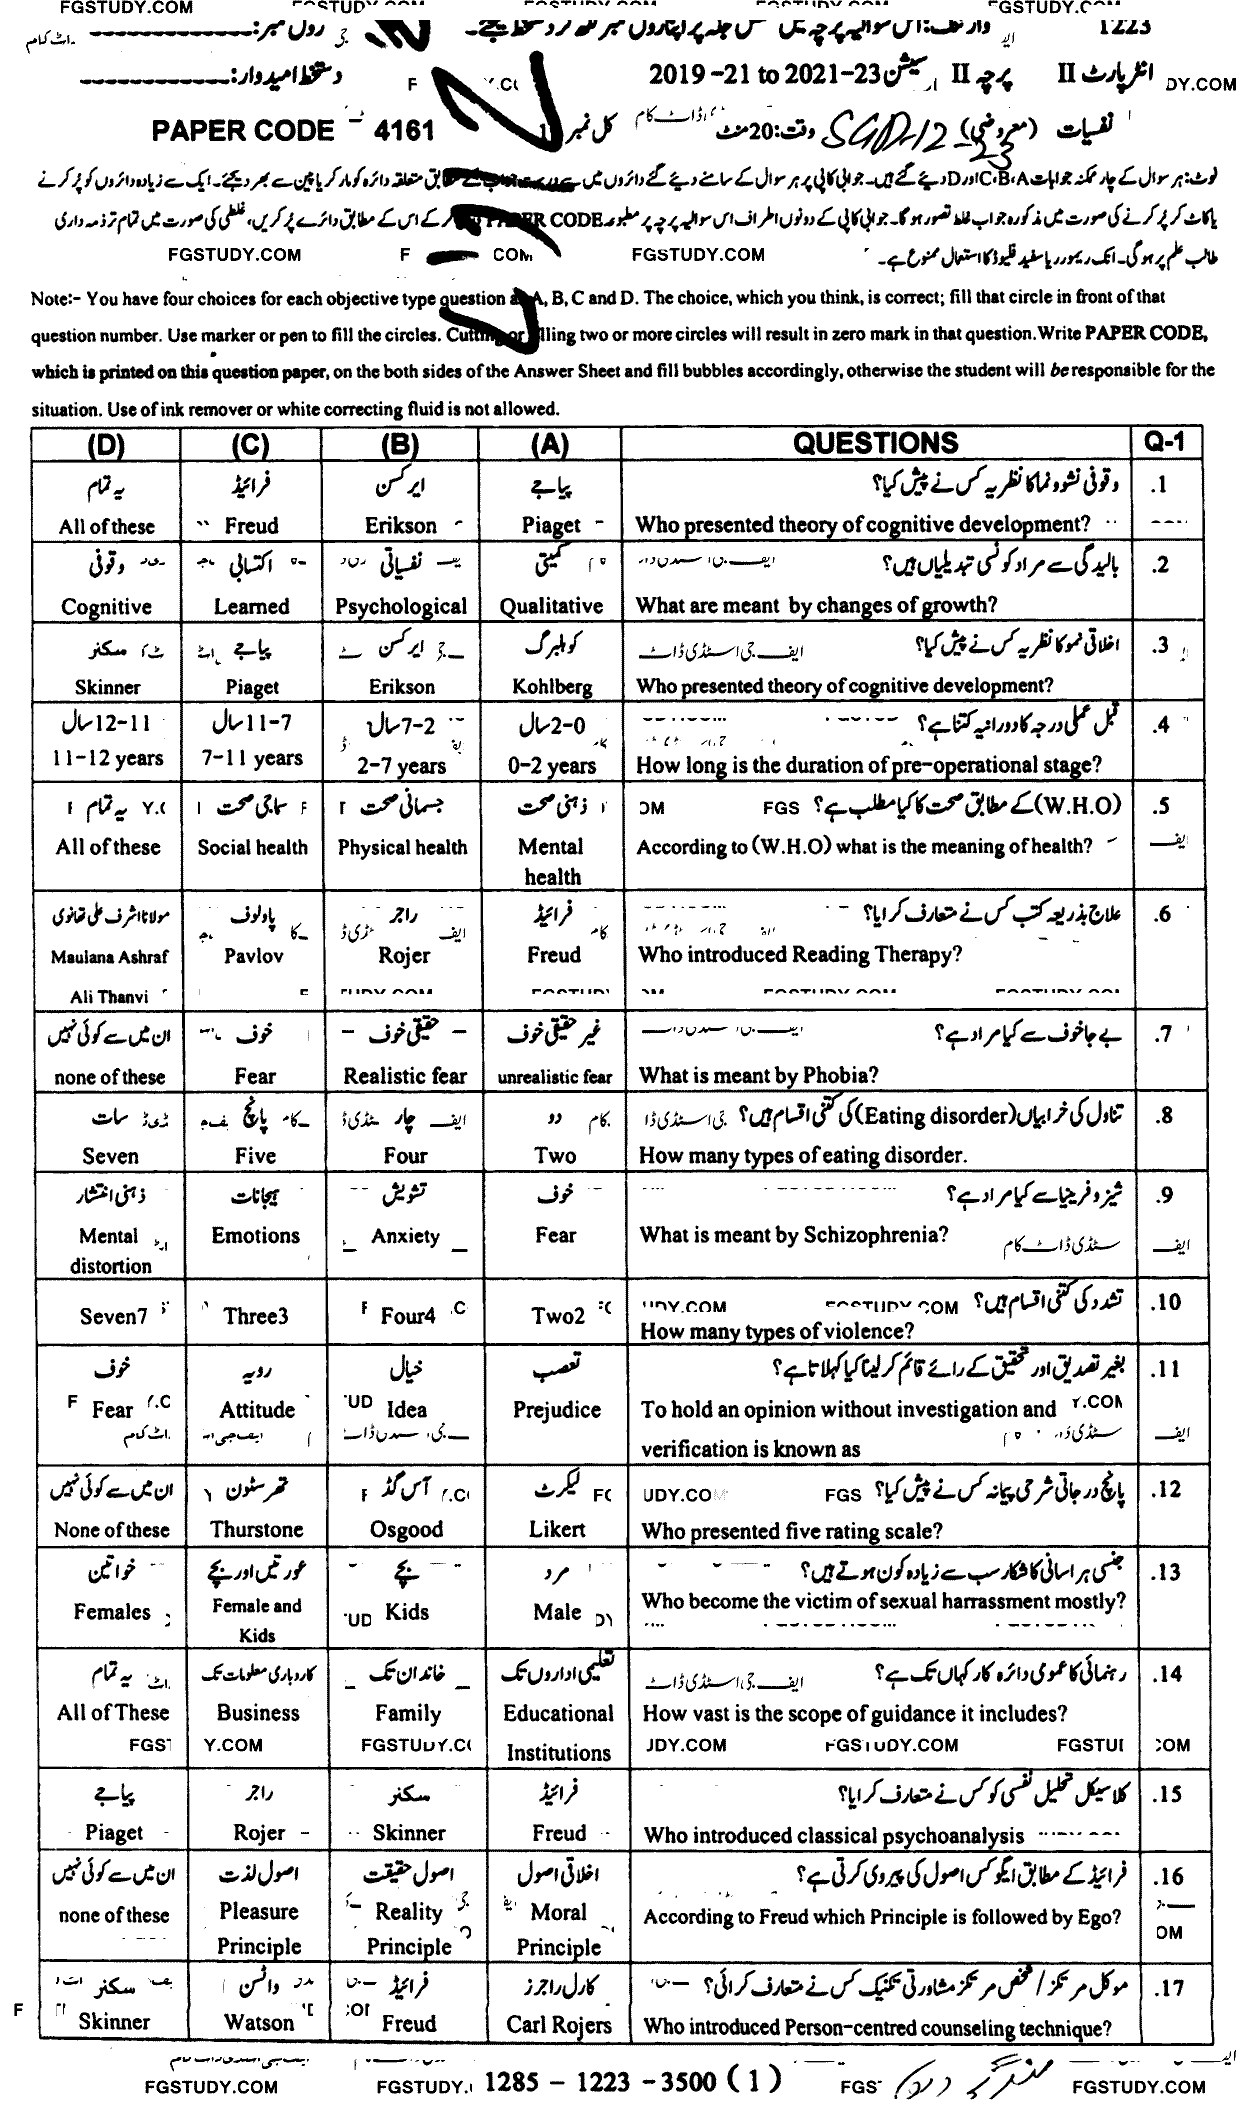 FGSTUDY.COM FGSTUDY.COM FGSTUDY.COM FGSTUDY.COM
1223 رول نمبر:
انٹر پارٹ II پرچہ II سیشن 2019-21 to 2021-23 دستخط امیدوار:
نفسیات (معروضی) SGD-12-23 وقت:20منٹ کل نمبر PAPER CODE 4161
نوٹ:ہر سوال کے چار ممکنہ جوابات C،B،A اور D دیے گئے ہیں۔ جوابی کاپی پر ہر سوال کے سامنے دیے گئے دائروں میں سے متعلقہ دائرہ کو مارکر یا پین سے بھر دیجئے۔ ایک سے زیادہ دائروں کو پُر کرنے
یا کاٹ کر پُر کرنے کی صورت میں مذکورہ جواب غلط تصور ہوگا۔ جوابی کاپی کے دونوں اطراف اس سوالیہ پرچہ پر مطبوعہ PAPER CODE کے اس کے مطابق دائرے پُر کریں، غلطی کی صورت میں تمام تر ذمہ داری
طالب علم پر ہوگی۔ انک ریموور یا سفید فلیوڈ کا استعمال ممنوع ہے۔ FGSTUDY.COM FGSTUDY.COM
Note:- You have four choices for each objective type question as A, B, C and D. The choice, which you think, is correct; fill that circle in front of that
question number. Use marker or pen to fill the circles. Cutting or filling two or more circles will result in zero mark in that question. Write PAPER CODE,
which is printed on this question paper, on the both sides of the Answer Sheet and fill bubbles accordingly, otherwise the student will be responsible for the
situation. Use of ink remover or white correcting fluid is not allowed.
(D) (C) (B) (A) QUESTIONS Q-1
.1 وقوفی نشوونما کا نظریہ کس نے پیش کیا؟ پیاجے ایرکسن فرائیڈ یہ تمام
All of these Freud Erikson Piaget Who presented theory of cognitive development?
.2 بالیدگی سے مراد کونسی تبدیلیاں ہیں؟ کمیتی نفسیاتی اکتسابی وقوفی
Cognitive Learned Psychological Qualitative What are meant by changes of growth?
.3 اخلاقی نمو کا نظریہ کس نے پیش کیا؟ کوہلبرگ ایرکسن پیاجے سکنر
Skinner Piaget Erikson Kohlberg Who presented theory of cognitive development?
.4 قبل عملی درجہ کا دورانیہ کتنا ہے؟ 0-2 سال 2-7 سال 7-11 سال 11-12 سال
11-12 years 7-11 years 2-7 years 0-2 years How long is the duration of pre-operational stage?
.5 (W.H.O) کے مطابق صحت کا کیا مطلب ہے؟ ذہنی صحت جسمانی صحت سماجی صحت یہ تمام
All of these Social health Physical health Mental According to (W.H.O) what is the meaning of health?
health
.6 علاج بذریعہ کتب کس نے متعارف کرایا؟ فرائیڈ راجر پاولوف مولانا اشرف علی تھانوی
Maulana Ashraf Pavlov Rojer Freud Who introduced Reading Therapy?
Ali Thanvi
.7 بے جا خوف سے کیا مراد ہے؟ غیر حقیقی خوف حقیقی خوف خوف ان میں سے کوئی نہیں
none of these Fear Realistic fear unrealistic fear What is meant by Phobia?
.8 تناول کی خرابیاں (Eating disorder) کی کتنی اقسام ہیں؟ دو چار پانچ سات
Seven Five Four Two How many types of eating disorder.
.9 شیزوفرینیا سے کیا مراد ہے؟ خوف تشویش ہیجانات ذہنی انتشار
Mental Emotions Anxiety Fear What is meant by Schizophrenia?
distortion
.10 تشدد کی کتنی اقسام ہیں؟
Seven7 Three3 Four4 Two2 How many types of violence?
.11 بغیر تصدیق اور تحقیق کے رائے قائم کر لینا کیا کہلاتا ہے؟ تعصب خیال رویہ خوف
Fear Attitude Idea Prejudice To hold an opinion without investigation and
verification is known as
.12 پانچ درجاتی شرحی پیمانہ کس نے پیش کیا؟ لیکرٹ آس گڈ تھرسٹون ان میں سے کوئی نہیں
None of these Thurstone Osgood Likert Who presented five rating scale?
.13 جنسی ہراسانی کا شکار سب سے زیادہ کون ہوتے ہیں؟ مرد بچے عورتیں اور بچے خواتین
Females Female and Kids Male Who become the victim of sexual harrassment mostly?
Kids
.14 رہنمائی کا عمومی دائرہ کار کہاں تک ہے؟ تعلیمی اداروں تک خاندان تک کاروباری معلومات تک یہ تمام
All of These Business Family Educational How vast is the scope of guidance it includes?
Institutions
.15 کلاسیکل تحلیل نفسی کو کس نے متعارف کرایا؟ فرائیڈ سکنر راجر پیاجے
Piaget Rojer Skinner Freud Who introduced classical psychoanalysis
.16 فرائیڈ کے مطابق ایگو کس اصول کی پیروی کرتی ہے؟ اخلاقی اصول اصول حقیقت اصول لذت ان میں سے کوئی نہیں
none of these Pleasure Reality Moral According to Freud which Principle is followed by Ego?
Principle Principle Principle
.17 موکل مرتکز / شخص مرتکز مشاورتی تکنیک کس نے متعارف کرائی؟ کارل راجرز فرائیڈ واٹسن سکنر
Skinner Watson Freud Carl Rojers Who introduced Person-centred counseling technique?
FGSTUDY.COM FGSTUDY. 1285 - 1223 - 3500 (1) FGS FGSTUDY.COM